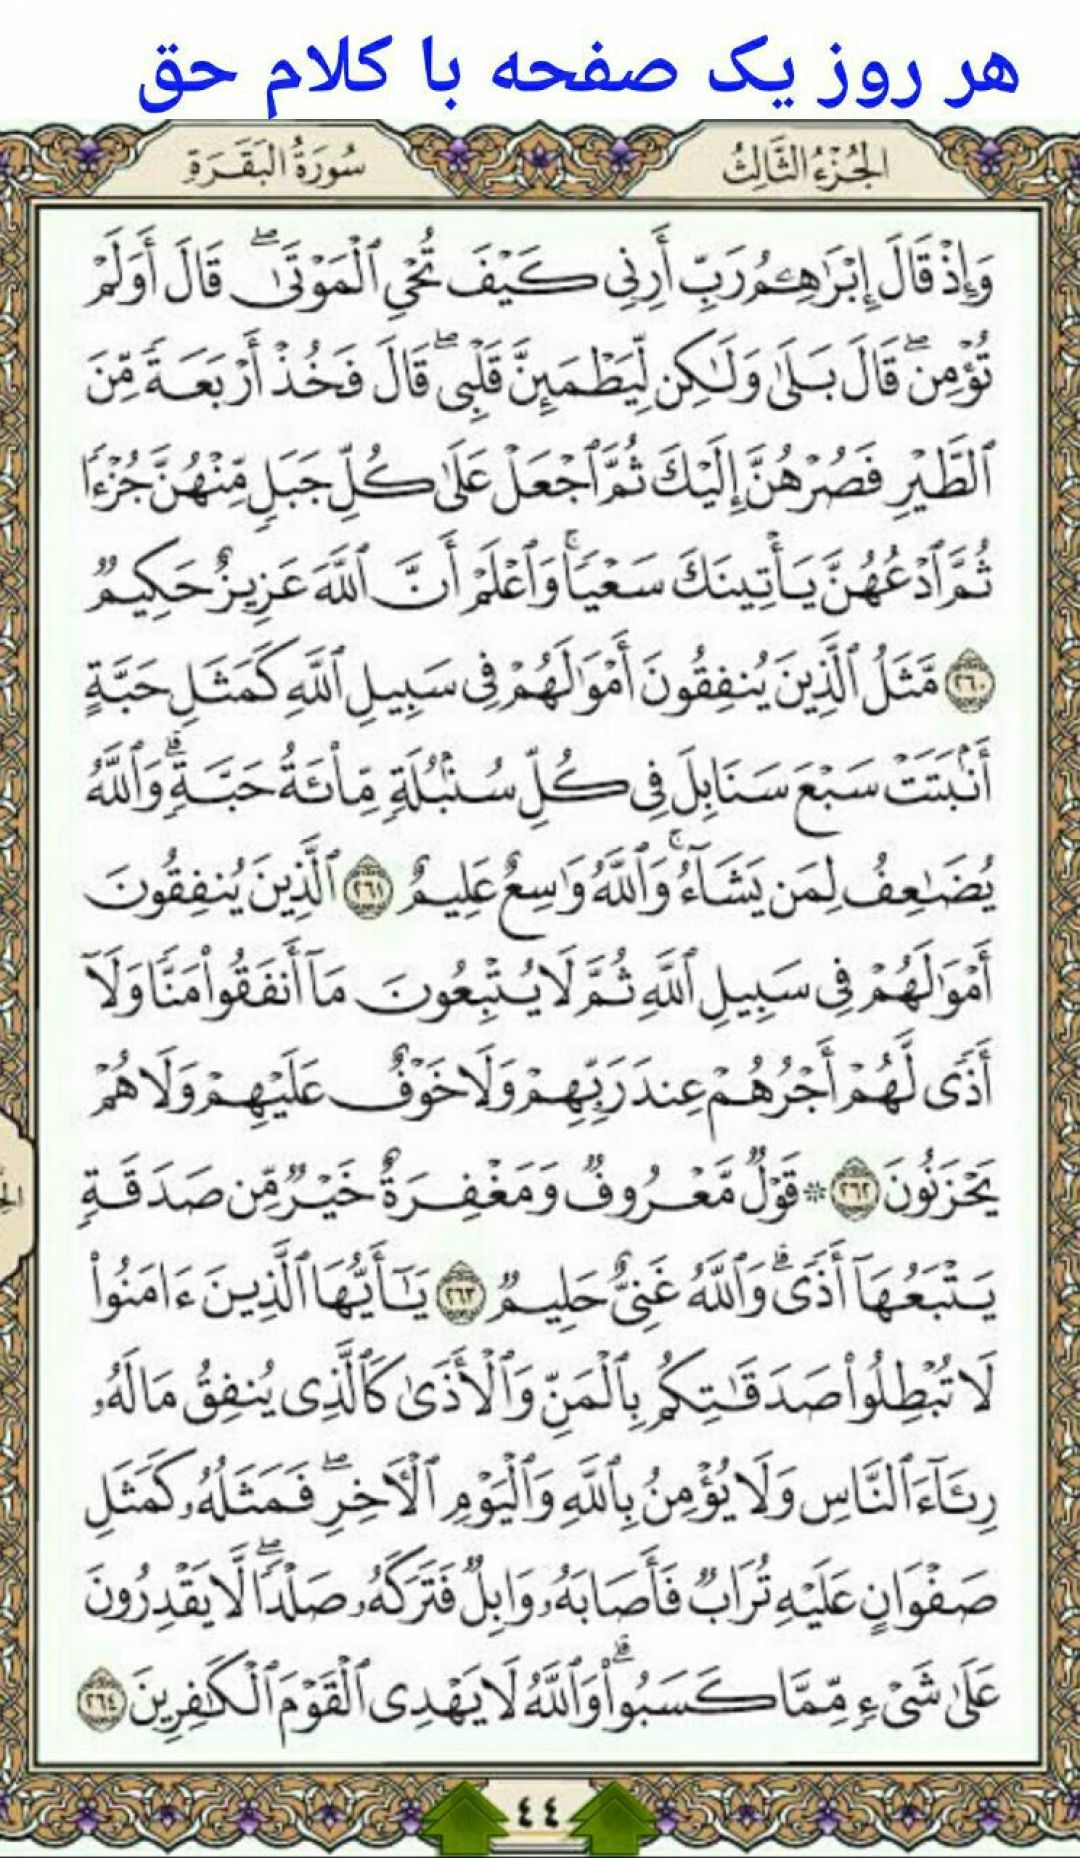 هر روز یک صفحه با کلام حق
الجُزْءُ الثَّالِثُ
سُورَةُ البَقَرَةِ
وَإِذْ قَالَ إِبْرَٰهِـۧمُ رَبِّ أَرِنِى كَيْفَ تُحْىِ ٱلْمَوْتَىٰ ۖ قَالَ أَوَلَمْ
تُؤْمِن ۖ قَالَ بَلَىٰ وَلَـٰكِن لِّيَطْمَئِنَّ قَلْبِى ۖ قَالَ فَخُذْ أَرْبَعَةً مِّنَ
ٱلطَّيْرِ فَصُرْهُنَّ إِلَيْكَ ثُمَّ ٱجْعَلْ عَلَىٰ كُلِّ جَبَلٍ مِّنْهُنَّ جُزْءًا
ثُمَّ ٱدْعُهُنَّ يَأْتِينَكَ سَعْيًا ۚ وَٱعْلَمْ أَنَّ ٱللَّهَ عَزِيزٌ حَكِيمٌ
٢٦٠ مَّثَلُ ٱلَّذِينَ يُنفِقُونَ أَمْوَٰلَهُمْ فِى سَبِيلِ ٱللَّهِ كَمَثَلِ حَبَّةٍ
أَنۢبَتَتْ سَبْعَ سَنَابِلَ فِى كُلِّ سُنۢبُلَةٍ مِّا۟ئَةُ حَبَّةٍ ۗ وَٱللَّهُ
يُضَـٰعِفُ لِمَن يَشَآءُ ۚ وَٱللَّهُ وَٰسِعٌ عَلِيمٌ ٢٦١ ٱلَّذِينَ يُنفِقُونَ
أَمْوَٰلَهُمْ فِى سَبِيلِ ٱللَّهِ ثُمَّ لَا يُتْبِعُونَ مَآ أَنفَقُوا۟ مَنًّا وَلَآ
أَذًى لَّهُمْ أَجْرُهُمْ عِندَ رَبِّهِمْ وَلَا خَوْفٌ عَلَيْهِمْ وَلَا هُمْ
يَحْزَنُونَ ٢٦٢ * قَوْلٌ مَّعْرُوفٌ وَمَغْفِرَةٌ خَيْرٌ مِّن صَدَقَةٍ
يَتْبَعُهَآ أَذًى ۗ وَٱللَّهُ غَنِىٌّ حَلِيمٌ ٢٦٣ يَـٰٓأَيُّهَا ٱلَّذِينَ ءَامَنُوا۟
لَا تُبْطِلُوا۟ صَدَقَـٰتِكُم بِٱلْمَنِّ وَٱلْأَذَىٰ كَٱلَّذِى يُنفِقُ مَالَهُۥ
رِئَآءَ ٱلنَّاسِ وَلَا يُؤْمِنُ بِٱللَّهِ وَٱلْيَوْمِ ٱلْـَٔاخِرِ ۖ فَمَثَلُهُۥ كَمَثَلِ
صَفْوَانٍ عَلَيْهِ تُرَابٌ فَأَصَابَهُۥ وَابِلٌ فَتَرَكَهُۥ صَلْدًا ۖ لَّا يَقْدِرُونَ
عَلَىٰ شَىْءٍ مِّمَّا كَسَبُوا۟ ۗ وَٱللَّهُ لَا يَهْدِى ٱلْقَوْمَ ٱلْكَـٰفِرِينَ ٢٦٤
٤٤